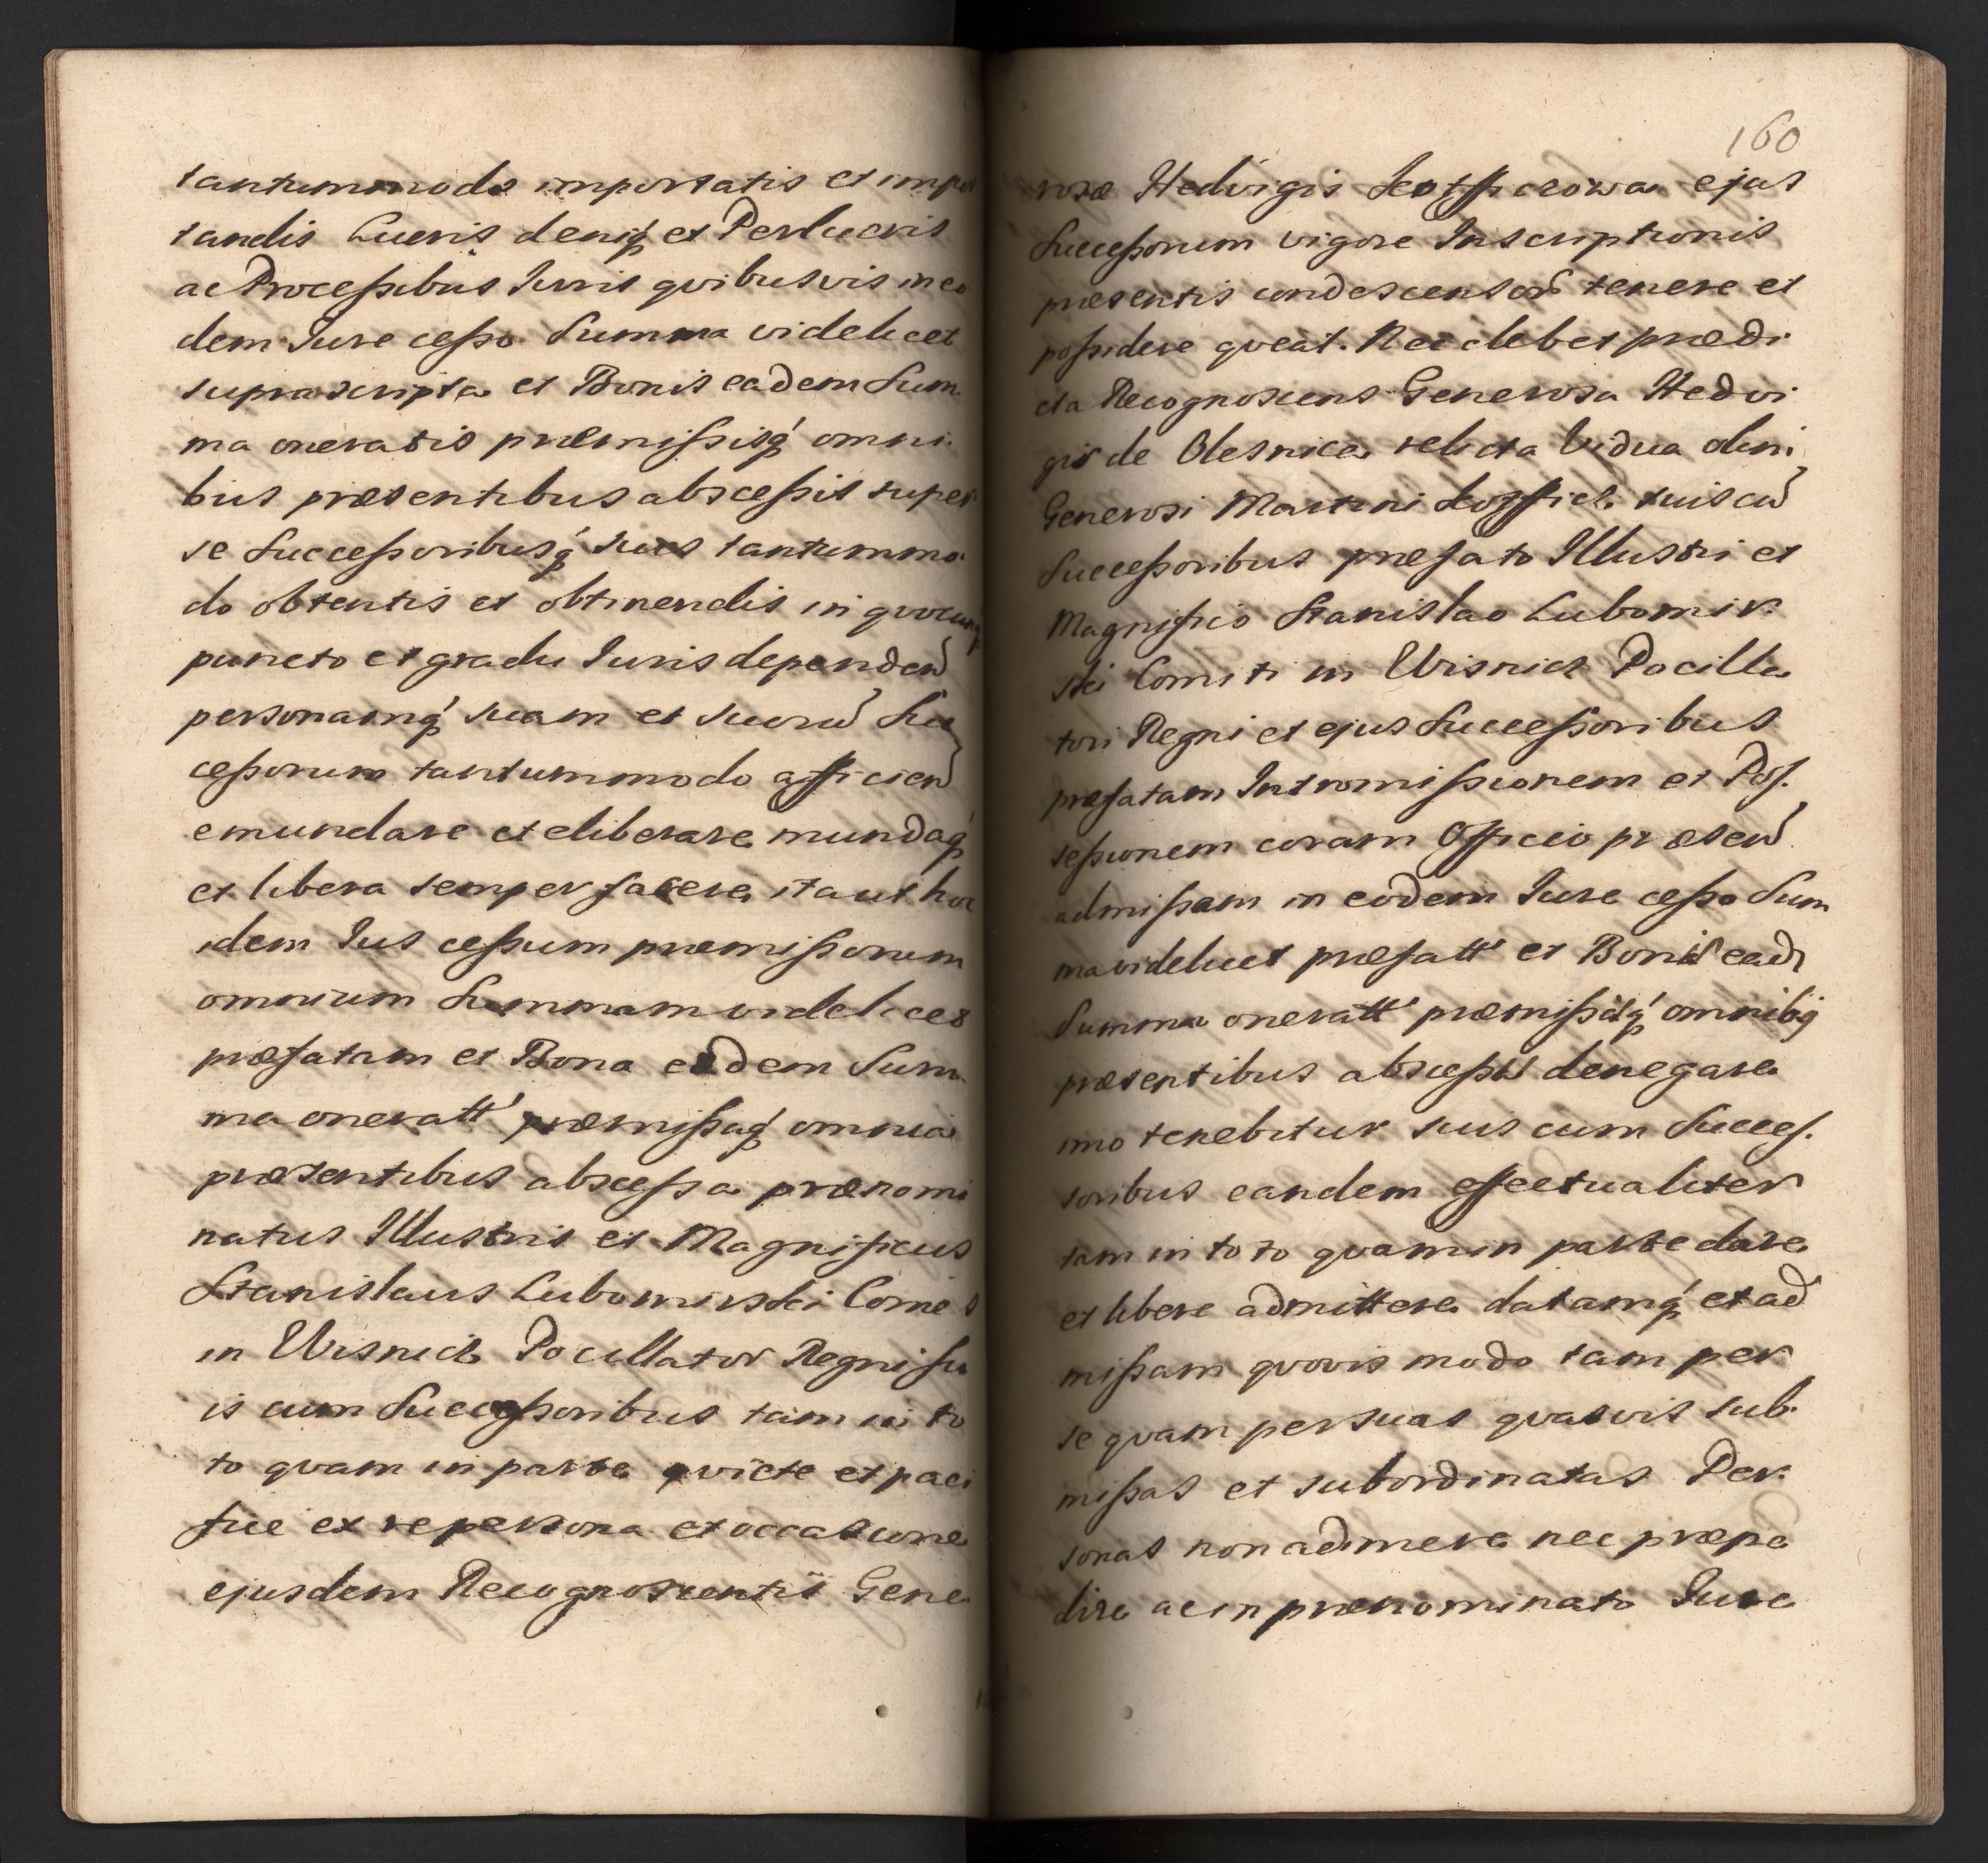 tantummodo importatis et impor
tandis Lucris deniq́ et Perlucris
ac Processibus Juris qvibusvis in eo
dem Jure cesso Summa videlicet
suprascripta et Bonis eadem Sum
ma oneratis præmissisq́ omni
bus præsentibus abscessis super
se Successoribusq́ suis tantummo
do obtentis et obtinendis in qvocunq́
puncto et gradu Juris dependen̄
personamq́ suam et suorū Suc
cessorum tantummodo afficien̄
emundare et eliberare mundaq́
et libera semper facere ita ut hoc
idem Jus cessum præmissorum
omnium Summam videlicet
præfatam et Bona eadem Sum
ma oneratt' præmissaq́ omnia
præsentibus abscessa prænomi
natus Illustris et Magnificus
Stanislaus Lubomirski Comes
in Wisnicz Pocillator Regni su
is cum Successoribus tam in to
to qvam in parte qviete et paci
fice ex re persona et occasione
ejusdem Recognoscentis Gene
160
rosæ Hedvigis ejus
Successorum vigore Inscriptionis
præsentis condescensor̄ tenere et
possidere qveat. Nec debet prædi
cta Recognoscens Generosa Hedvi
gis de Olesnica relicta Vidua olim
Generosi Martini suis cū
Successoribus præfato Illustri et
Magnifico Stanislao Lubomir
ski Comiti in Wisnicz Pocilla
tori Regni et ejus Successoribus
præfatam Intromissionem et Pos
sessionem coram Officio præsen̄
admissam in eodem Jure cesso Sum
ma videlicet præfatt' et Bonis ead
Summa oneratt' præmissisq́ omnibq́
præsentibus abscessis denegare
imo tenebitur suis cum Succes
soribus eandem effectualiter
tam in toto qvam in parte dare
et libere admittere datamq́ et ad
missam qvovis modo tam per
se qvam per suas qvasvis sub
missas et subordinatas Per
sonas non adimere nec præpe
dire ac in prænominato Jure